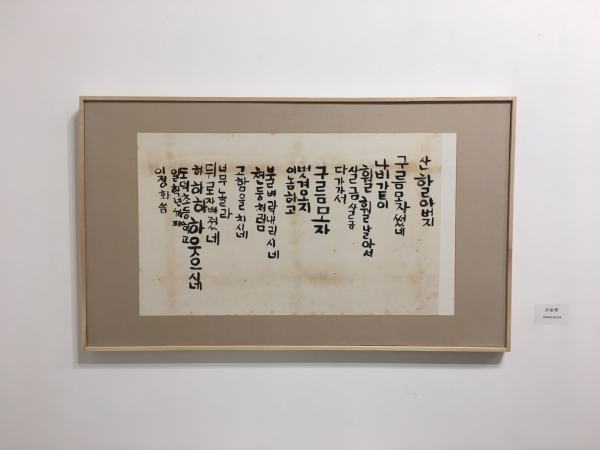 산 할아버지
구름모자 썼네
나비같이
훨훨 훨훨날아서
살금살금
다가가서
구름모자
벗겨오지
이놈하고
불벼락내리시네
천둥처럼
고함을 치시네
너무 놀라
뒤로자빠졌네
하하하하 웃으시네
초등학교
일학년
이정화 씀